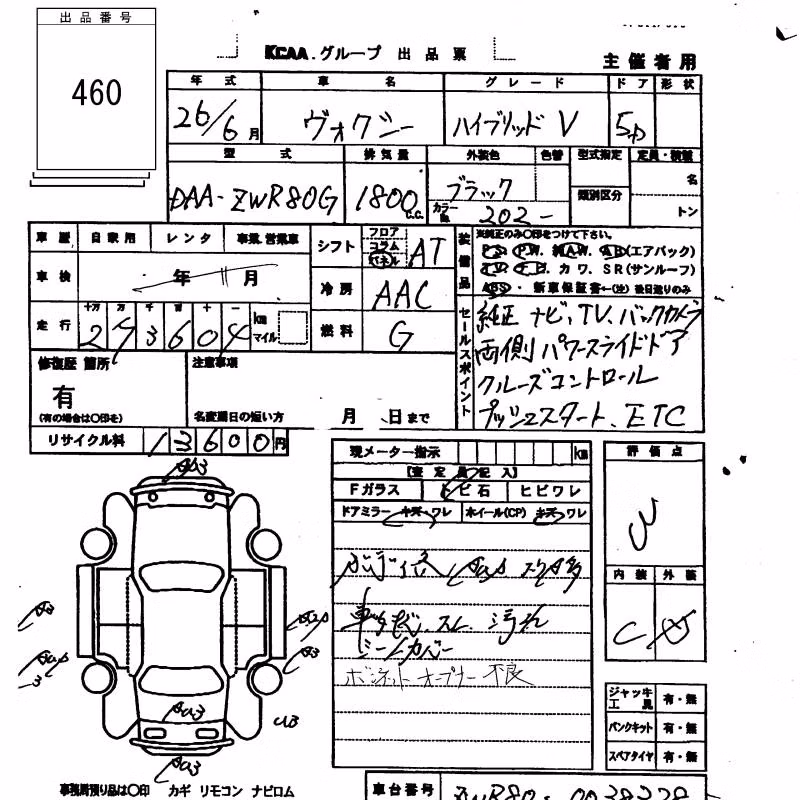 出品番号
460
KCAA.グループ 出品票
主催者用
年式 車名 グレード ドア 形状
26/6月 ヴォクシー ハイブリッド V 5D
型式 排気量 外装色 色替 型式指定 定員・積載
類別区分 名
トン
DAA-ZWR80G 1800c.c. ブラック
カラーNo. 202-
車歴 自家用 レンタ 事業.営業車
シフト フロア コラム パネル AT
装備品
※純正のみ〇印をつけて下さい。
PS. PW. 純AW. AB(エアバック)
TV. ナビ. カワ. SR(サンルーフ)
ABS・ 新車保証書←(注)後日送りのみ
車検 年 月
冷房 AAC
走行 十万 万 千 百 十 一
km マイル
燃料 G
セールスポイント
純正ナビ、TV、バックカメラ
両側パワースライドドア
クルーズコントロール
プッシュスタート、ETC
修復歴 箇所
有
(有の場合は〇印を)
注意事項
名変期日の短い方 月 日まで
リサイクル料 13600円
現メーター指示 km
【査定員記入】
Fガラス トビ石 ヒビワレ
ドアミラー キズ・ワレ ホイール(CP) キズ・ワレ
シートカバー
ボンネットオープナー 不良
評価点
3
内装 外装
C
ジャッキ工具 有・無
パンクキット 有・無
スペアタイヤ 有・無
事務局預り品は〇印 カギ リモコン ナビロム
車台番号